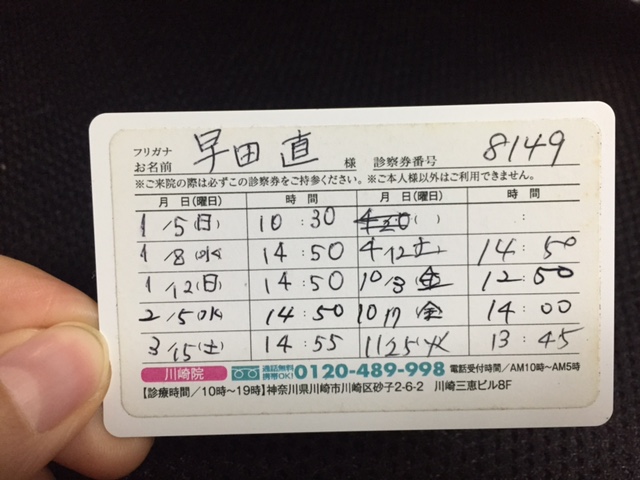 フリガナ
お名前 早田 直 様 診察券番号 8149
※ご来院の際は必ずこの診察券をご持参ください。※ご本人様以外はご利用できません。
月 日(曜日) 時 間 月 日(曜日) 時 間
1/5(日) 10:30 4 20 ( ) :
1/8(水) 14:50 4/12(土) 14:50
1/12(日) 14:50 10/3(金) 12:50
2/5(水) 14:50 10/17(金) 14:00
3/15(土) 14:55 11/25(火) 13:45
川崎院 通話無料 携帯OK! 0120-489-998 電話受付時間/AM10時~AM5時
【診療時間/10時~19時】神奈川県川崎市川崎区砂子2-6-2 川崎三恵ビル8F